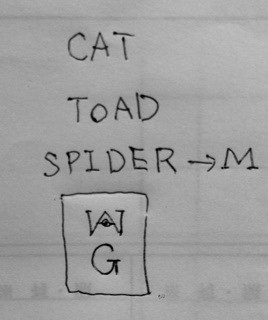 CAT
TOAD
SPIDER → M
G